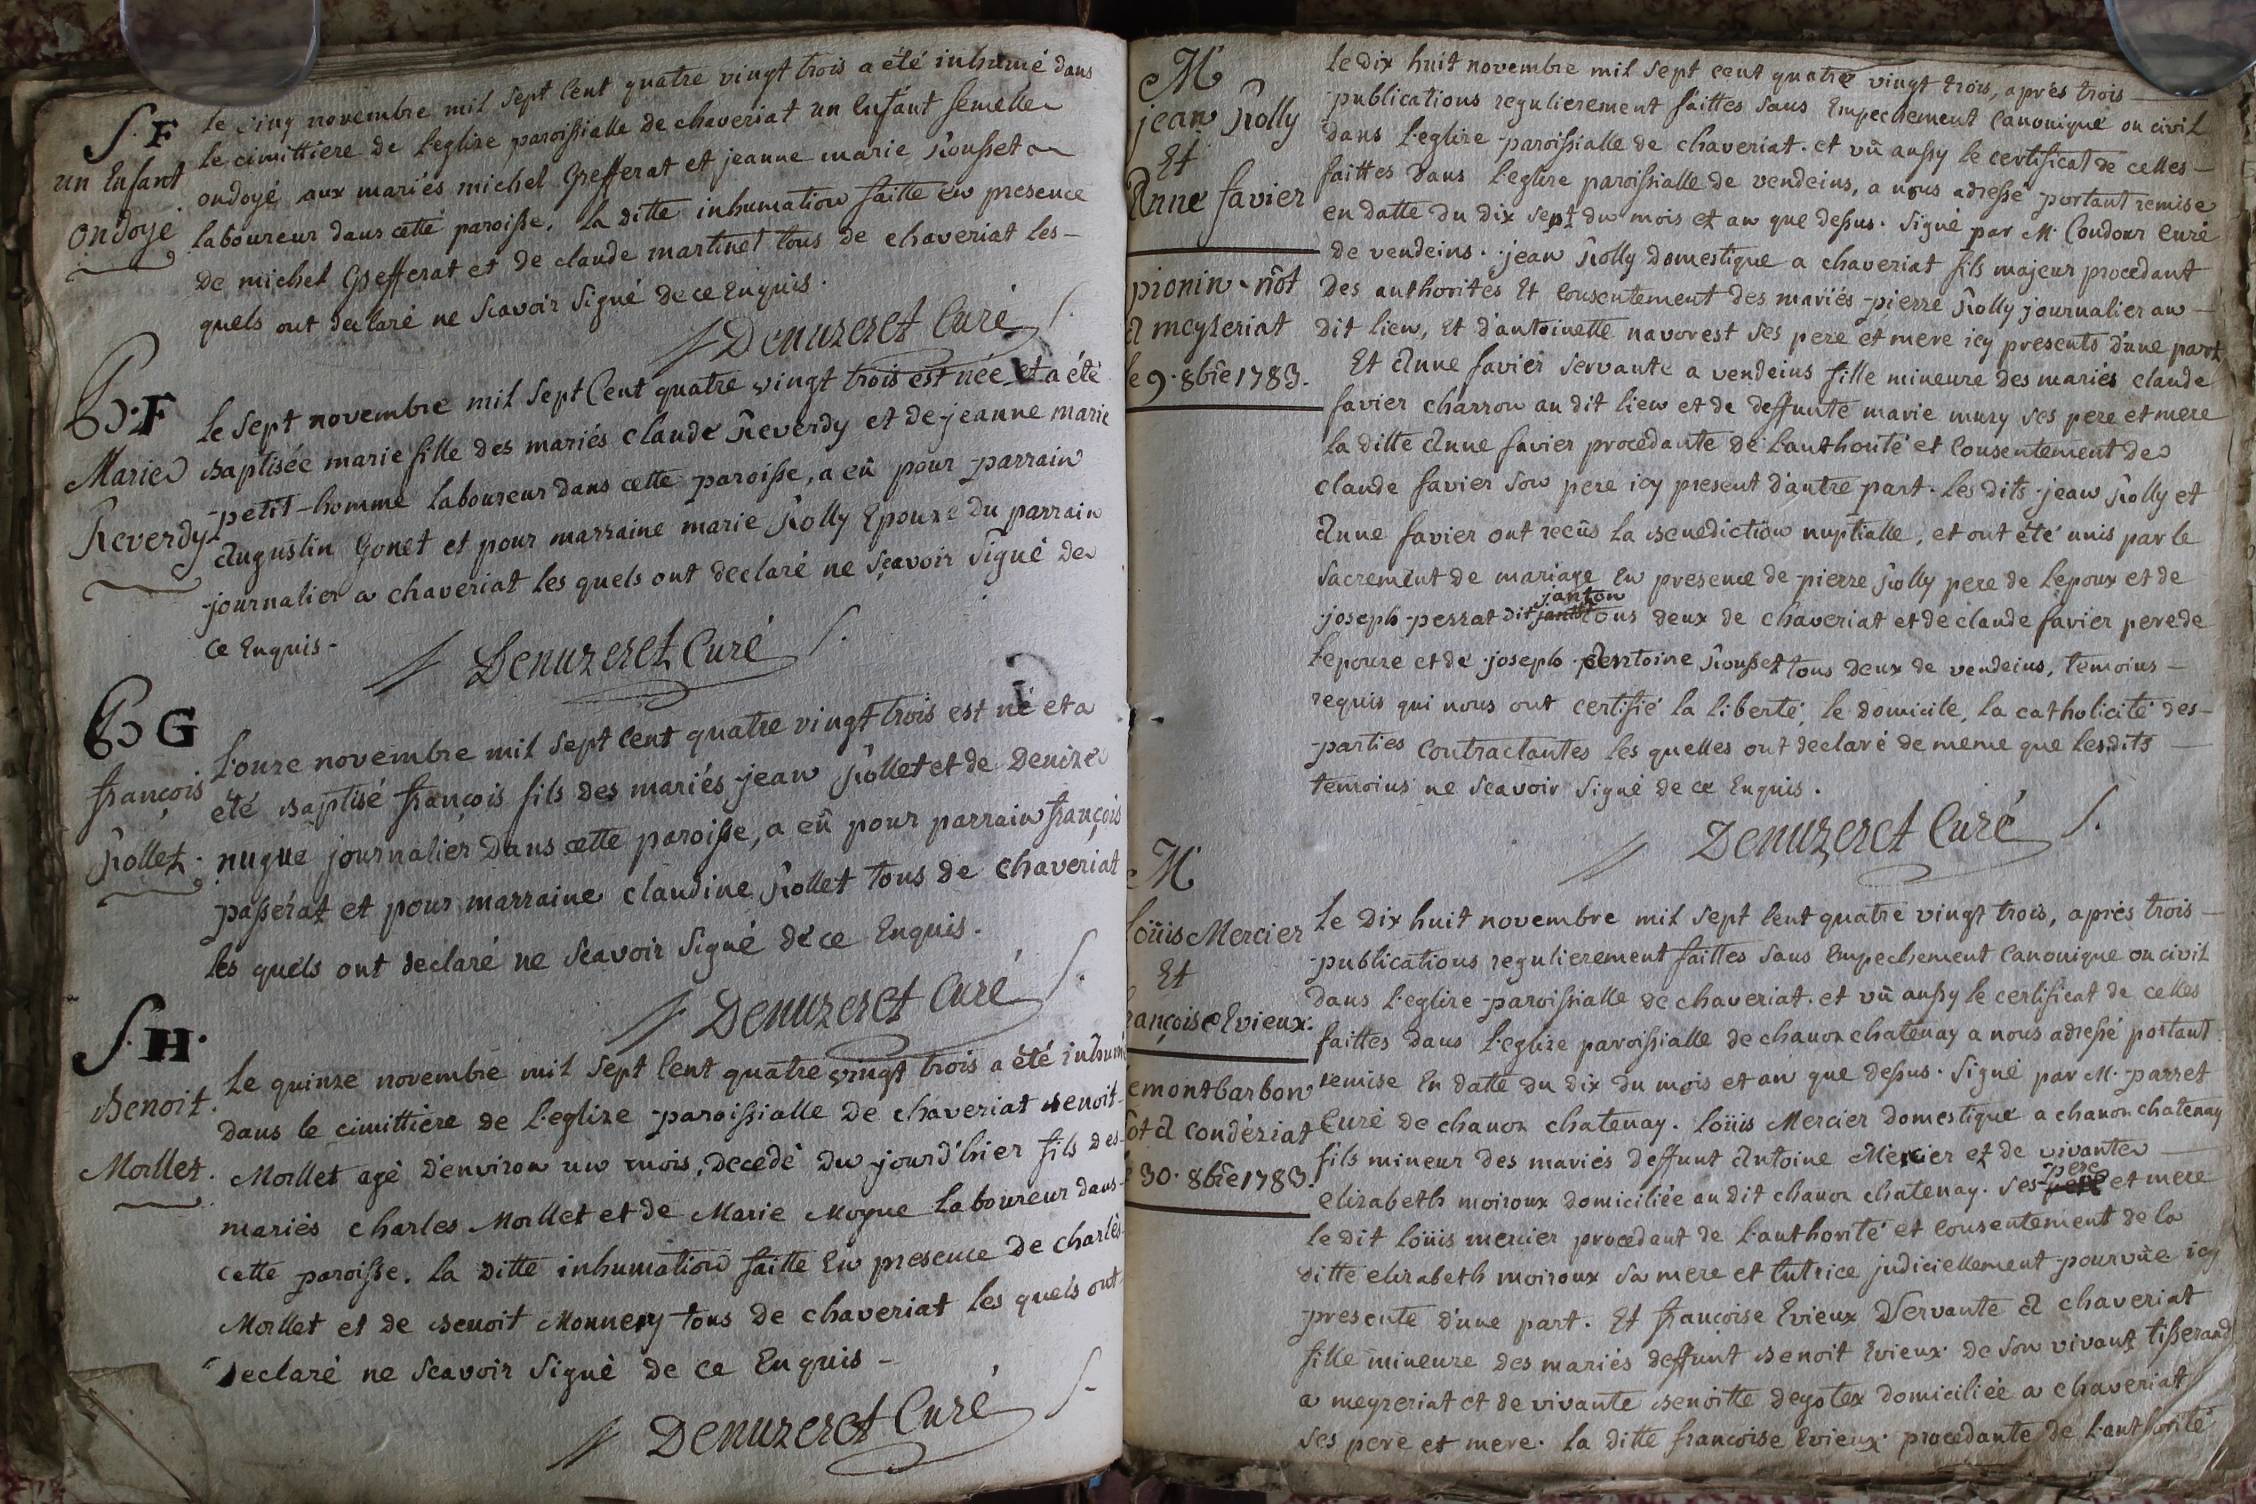 S. F
un Enfant
ondoyé
le cinq novembre mil sept Cent quatre vingt trois a été inhumé dans
le cimittiere de l'eglise paroissialle de chaveriat un Enfant femelle
ondoyé aux mariés michel Grefferat et jeanne marie Rousset
laboureur dans cette paroisse. la ditte inhumation faitte en presence
de michel Grefferat et de claude martinet tous de chaveriat les-
quels ont declaré ne scavoir signé de ce Enquis.
Denuzeret Curé
B. F
Marie
Reverdy
le sept novembre mil sept Cent quatre vingt trois est née et a été
Baptisée marie fille des mariés claude Reverdy et de jeanne marie
petit-homme laboureur dans cette paroisse, a eû pour parrain
Augustin Gonet et pour marraine marie Rolly Epouze du parrain
journalier a chaveriat les quels ont declaré ne sçavoir signé de
ce Enquis-
Denuzeret Curé
B G
françois
Rollet.
l'onze novembre mil sept Cent quatre vingt trois est né et a
été Baptisé françois fils des mariés jean Rollet et de Denize
nugue journalier dans cette paroisse, a eû pour parrain françois
passerat et pour marraine claudine Rollet tous de chaveriat
les quels ont declaré ne scavoir signé de ce Enquis.
Denuzeret Curé
S. H.
Benoit
Mollet.
le quinze novembre mil sept Cent quatre vingt trois a été inhumé
dans le cimittiere de l'eglize paroissialle de chaveriat Benoit
Mollet agé d'environ un mois, decedé du jourd'hier fils des
mariés charles Mollet et de Marie Moyne laboureur dans
cette paroisse. la ditte inhumation faitte En presence de charles
Mollet et de Benoit Monnery tous de chaveriat les quels ont
Declaré ne scavoir signé de ce Enquis -
Denuzeret Curé
M
jean Rolly
Et
Anne favier
pionin nôt
a meyzeriat
le 9. 8bre 1783.
le dix huit novembre mil sept cent quatre vingt trois, aprés trois
publications regulierement faittes sans Empechement Canonique ou civil
dans l'eglize paroissialle de chaveriat. et vû aussy le certificat de celles
faittes dans l'eglize paroissialle de vendeins, a nous adressé portant remise
en datte du dix sept du mois et an que dessus. signé par M. Condour curé
de vendeins. jean Rolly domestique a chaveriat fils majeur procedant
des authorités Et Consentement des mariés pierre Rolly journalier au
dit lieu, Et d'antoinette navorest ses pere et mere icy presents d'une part,
Et Anne favier servante a vendeins fille mineure des mariés claude
favier charron au dit lieu et de deffunte marie mury ses pere et mere
la ditte Anne favier procedante de l'authorité et Consentement de
claude favier son pere icy present d'autre part. les dits jean Rolly et
Anne favier ont recûs la Benediction nuptialle, et ont été unis par le
sacrement de mariage En presence de pierre Rolly pere de l'epoux et de
janton
joseph perrat dit tous deux de chaveriat et de claude favier pere de
l'epouze et de joseph Antoine Rousset tous deux de vendeins, temoins
requis qui nous ont certifié la liberté, le domicile, la catholicité des
parties Contractantes les quelles ont declaré de meme que lesdits
temoins ne scavoir signé de ce Enquis.
Denuzeret Curé
M
loüis Mercier
Et
françoise Evieux.
montbarbon
nôt a condériat
le 30. 8bre 1783.
le dix huit novembre mil sept Cent quatre vingt trois, aprés trois
publications regulierement faittes sans Empechement Canonique ou civil
dans l'eglize paroissialle de chaveriat. et vû aussy le certificat de celles
faittes dans l'eglize paroissialle de chanoz chatenay a nous adressé portant
remise En datte du dix du mois et an que dessus. signé par M. parret
Curé de chanoz chatenay. loüis Mercier domestique a chanoz chatenay
fils mineur des mariés deffunt Antoine Mercier et de vivante
elizabeth moiroux domiciliée au dit chanoz chatenay. ses pere et mere
le dit loüis mercier procedant de l'authorité et consentement de la
ditte elizabeth moiroux sa mere et tutrice judiciellement pourvûe icy
presente d'une part. Et françoise Evieux Servante a chaveriat
fille mineure des mariés deffunt Benoit Evieux de son vivant tisserand
a meyzeriat et de vivante Benoitte degotex domiciliée a chaveriat
ses pere et mere. la ditte françoise Evieux procedante de l'authorité